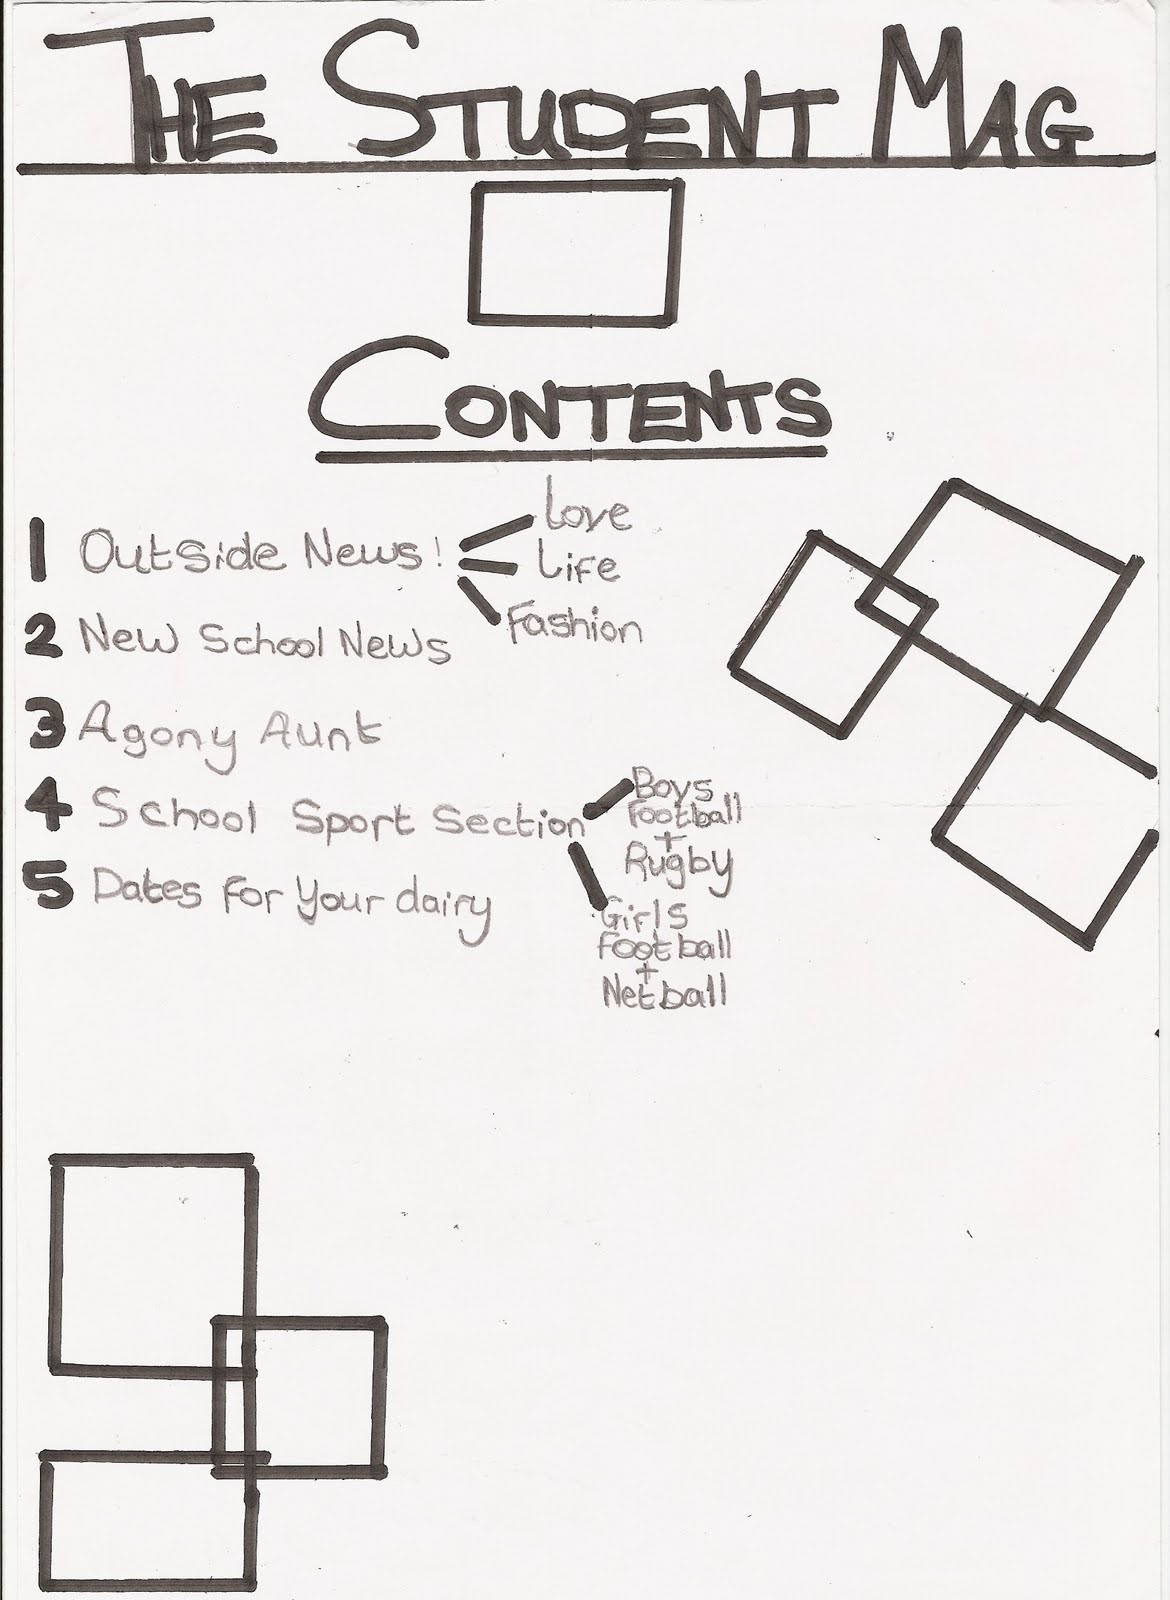 THE STUDENT MAG
CONTENTS
1 Outside News!
Love
Life
Fashion
2 New School News
3 Agony Aunt
4 School Sport Section
Boys
Football
+
Rugby
Girls
Football
+
Netball
5 Dates for Your dairy